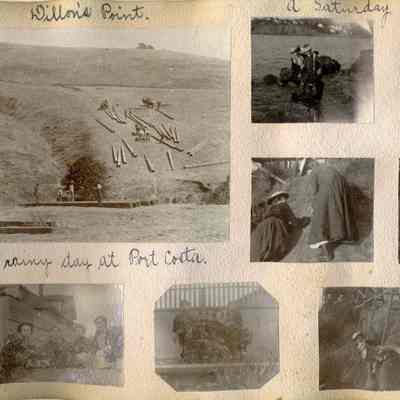 Dillon's Point.
a Saturday
rainy day at Port Costa.